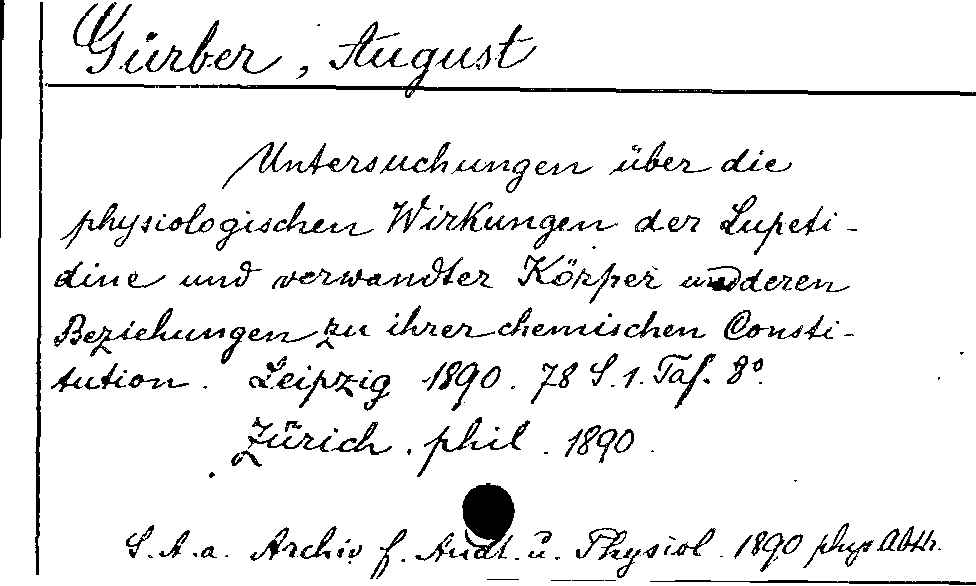 Gürber, August
Untersuchungen über die
physiologischen Wirkungen der Lupeti-
dine und verwandter Körper und deren
Beziehungen zu ihrer chemischen Consti-
tution. Leipzig 1890. 78 S. 1. Taf. 8°.
Zürich. phil. 1890.
S. A. a. Archiv f. Anat. u. Physiol. 1890 phys. Abth.